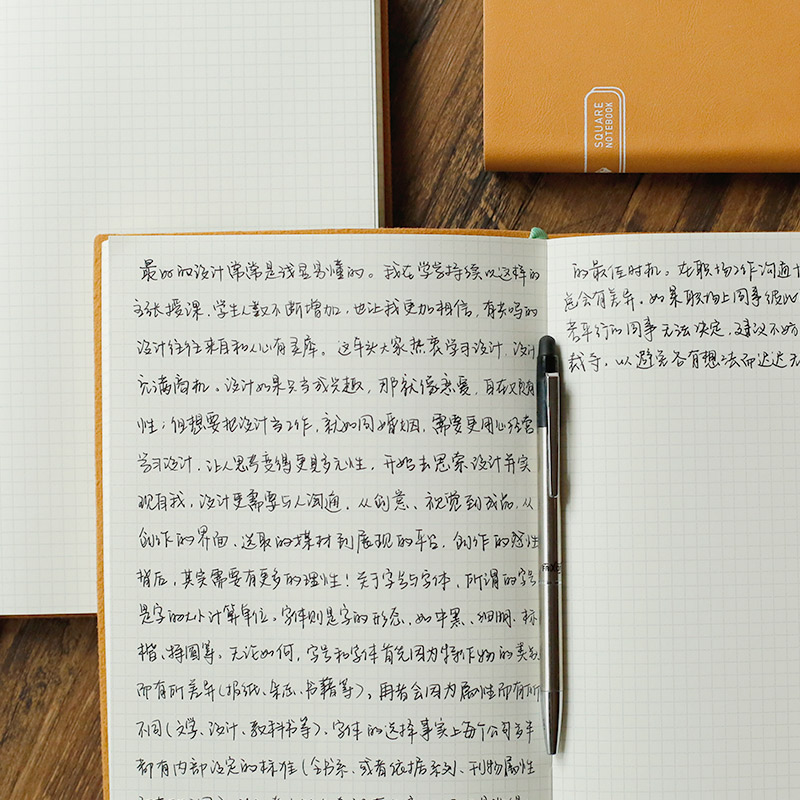 SQUARE
NOTEBOOK
最好的设计常常是浅显易懂的。我在学学持续以这样的
主张授课，学生人数不断增加，也让我更加相信，有共鸣的
设计往往来自和人心有灵犀。这年头大家热衷学习设计，设计
充满商机。设计如果只当成兴趣，那就像恋爱，自在又随
性；但想要把设计当工作，就如同婚姻，需要更用心经营
学习设计，让人思考变得更多元性，开始去思索设计并实
现自我，设计更需要与人沟通，从创意、视觉到成品，从
创作的界面、选取的媒材到展现的平台，创作的感性
背后，其实需要有更多的理性！关于字号与字体，所谓的字号
是字的大小计算单位。字体则是字的形态，如中黑、细明、标
楷、特圆等，无论如何，字号和字体首先因为制作物的类别
而有所差异（报纸、杂志、书籍等），再者会因为属性而有所
不同（文学、设计、教科书等），字体的选择事实上每个公司当年
都有内部设定的标准（全书系、或者依据系列、刊物属性
的最佳时机。在职场工作沟通
总会有差异，如果职场上同事彼此
若平行的同事无法决定，建议不妨
裁夺，以避免各有想法而迟迟无